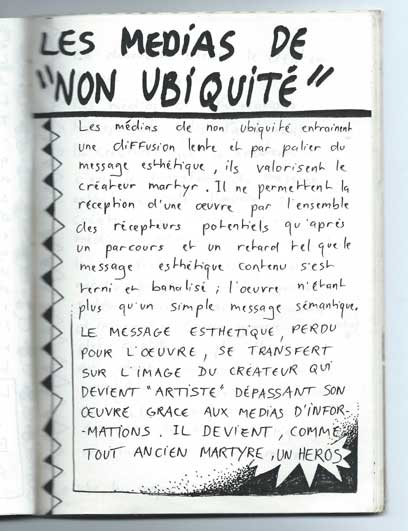 LES MEDIAS DE
"NON UBIQUITÉ"
Les médias de non ubiquité entrainent
une diffusion lente et par palier du
message esthétique, ils valorisent le
créateur martyr. Il ne permettent la
réception d'une œuvre par l'ensemble
des récepteurs potentiels qu'après
un parcours et un retard tel que le
message esthétique contenu s'est
terni et banalisé ; l'œuvre n'étant
plus qu'un simple message sémantique.
LE MESSAGE ESTHETIQUE, PERDU
POUR L'ŒUVRE, SE TRANSFERT
SUR L'IMAGE DU CRÉATEUR QUI
DEVIENT "ARTISTE" DÉPASSANT SON
ŒUVRE GRACE AUX MEDIAS D'INFOR-
-MATIONS. IL DEVIENT, COMME
TOUT ANCIEN MARTYRE, UN HEROS